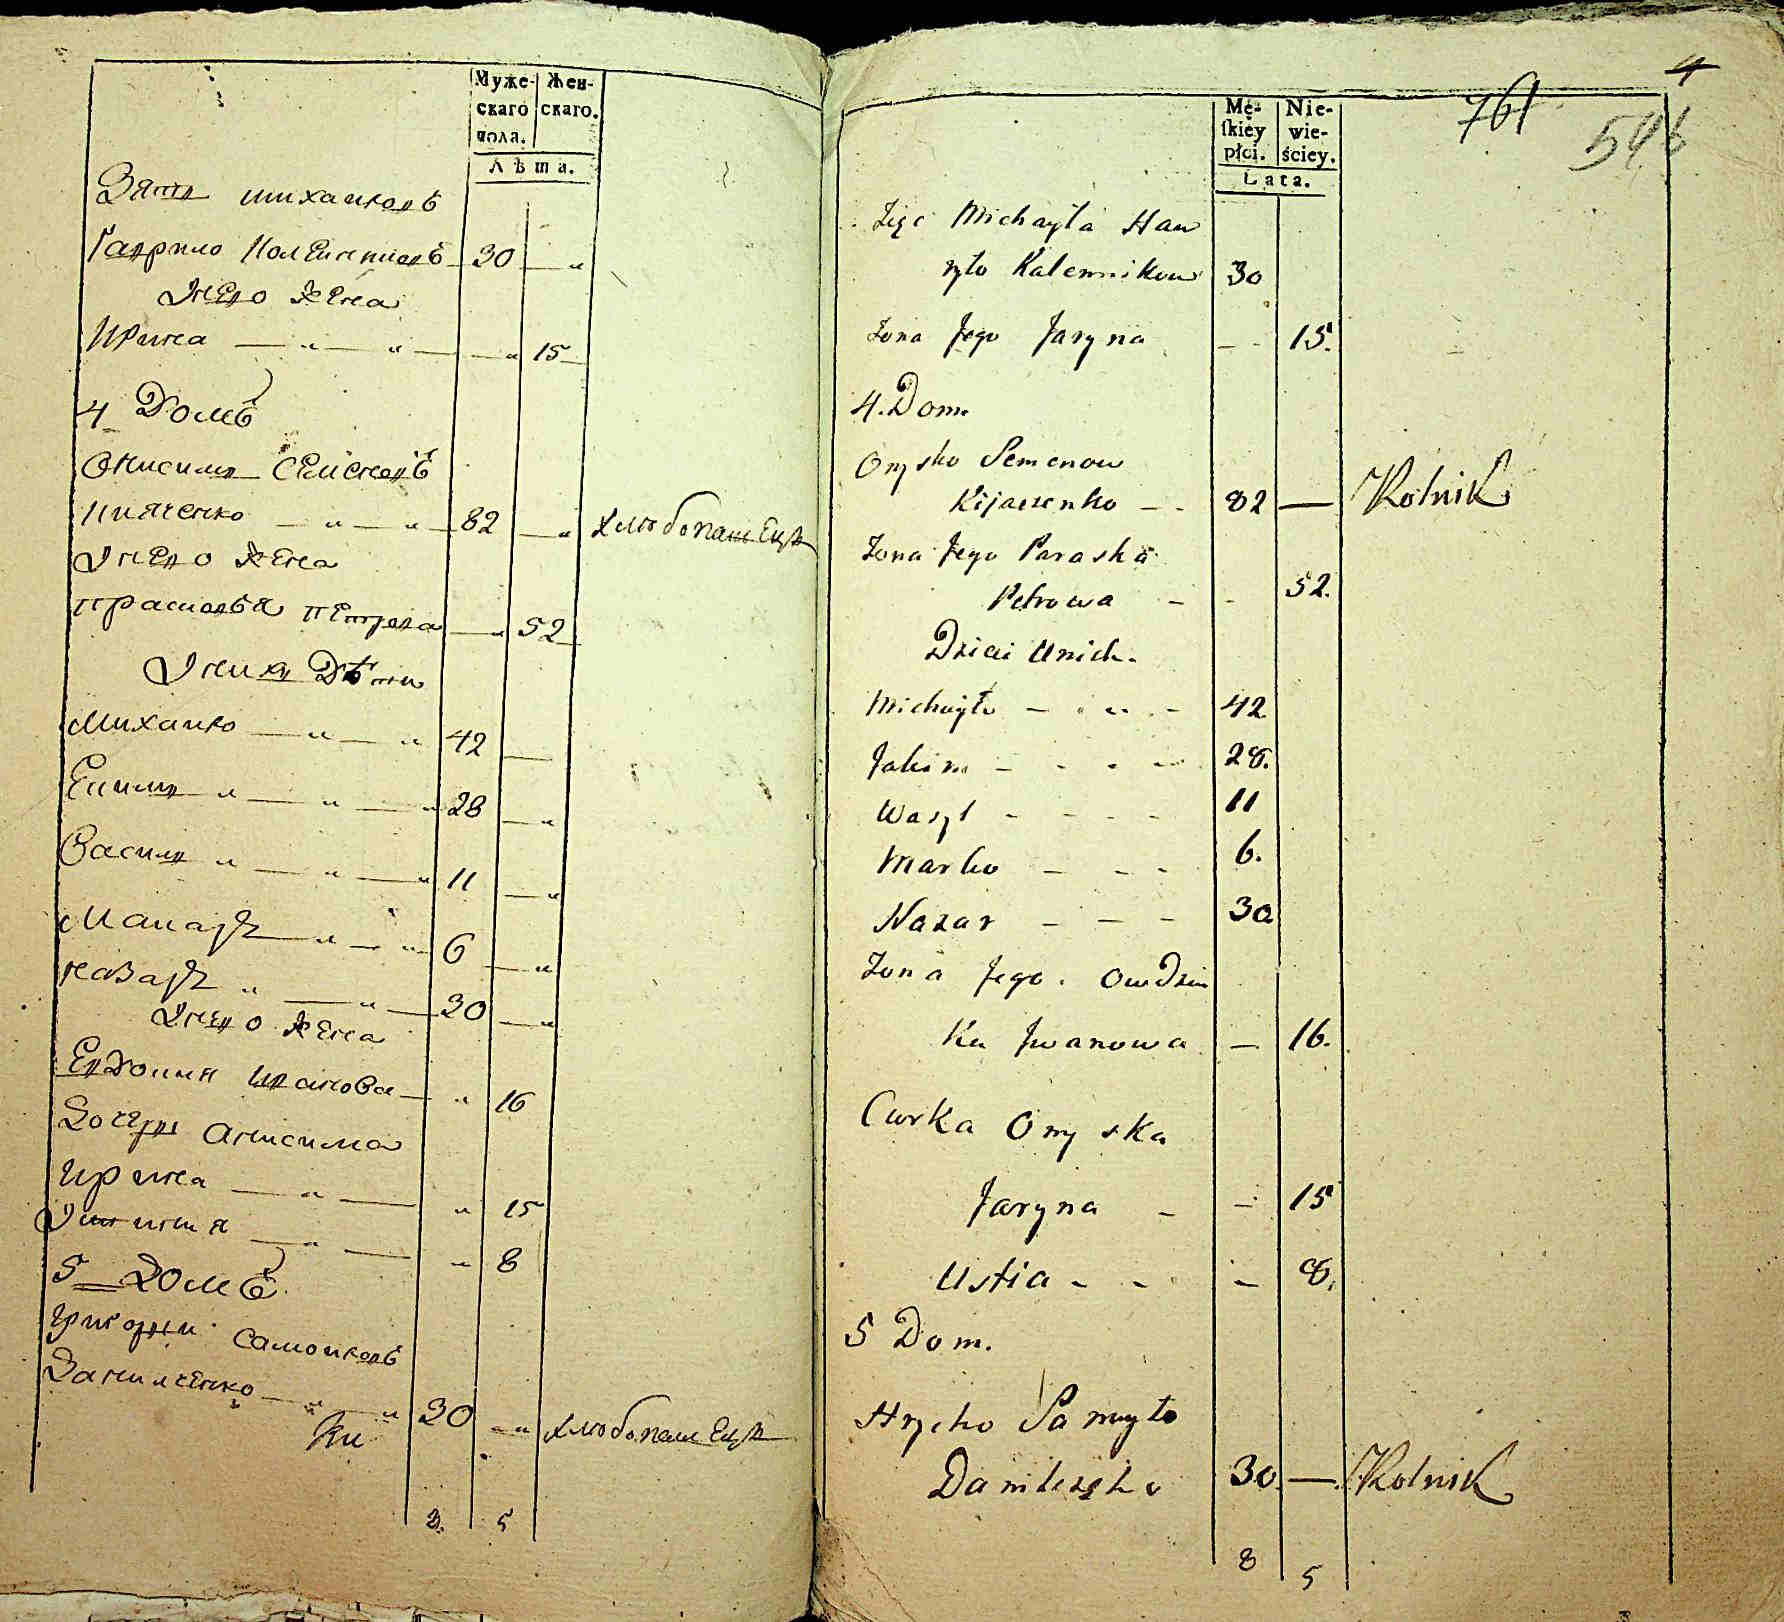 Муже- Жен-
скаго скаго.
пола.
Лѣта.
Зять михайловъ
Гаврило 30 „
У него Жена
Ирина „ „ „ 15
4 Домъ
Онисимъ Семеновъ
Кияченко „ „ 82 „ хлѣбопашецъ
У него Жена
прасковья петрова „ 52
У них Дѣти
Михайло „ „ 42
Екимъ „ „ „ 28 „
Василь „ „ „ 11 „
Макаръ „ „ 6 „
назаръ „ „ 30 „
У него Жена
Евдокия иванова „ 16
Дочери Анисима
Ирина „ „ 15
Устиния „ „ 8
5 Домъ
Григорий Самойловъ
Данилченко „ „ 30 „ хлѣбопашецъ
8 5
4
761
546
Mę- Nie-
skiey wie-
płci. ściey.
Lata.
Zięć Michayła Haw
ryło Kalennikow 30
Żona Jego Jaryna - - 15.
4. Dom.
Onysko Semenow
Kijaczenko - - 82 — Rolnik
Żona Jego Paraska
Petrowa - - 52.
Dzieci Unich.
Michayło - - - 42
Jakim - - - 28.
Wasyl - - - 11
Marko - - - 6.
Nazar - - - 30
Żona Jego. Owdzie
Ka Jwanowa — 16.
Curka Onyska
Jaryna - - 15
Ustia - - - 8.
5 Dom.
Hrycko Samuyło
Danileczko 30. — Rolnik
8 5